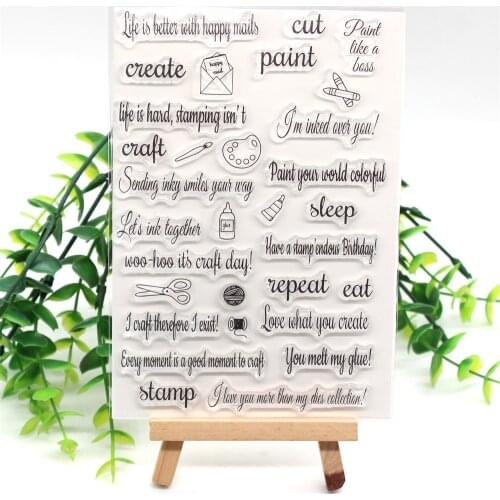 Life is better with happy mails
cut
Paint
like a
boss
create
happy
mail
paint
life is hard, stamping isn't
I'm inked over you!
craft
Paint your world colorful
Sending inky smiles your way
sleep
Let's ink together
glue
Have a stamp'endous Birthday!
woo-hoo it's craft day!
repeat
eat
I craft therefore I exist!
Love what you create
Every moment is a good moment to craft
You melt my glue!
stamp
I love you more than my dies collection!